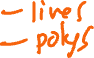 - lines
- polys